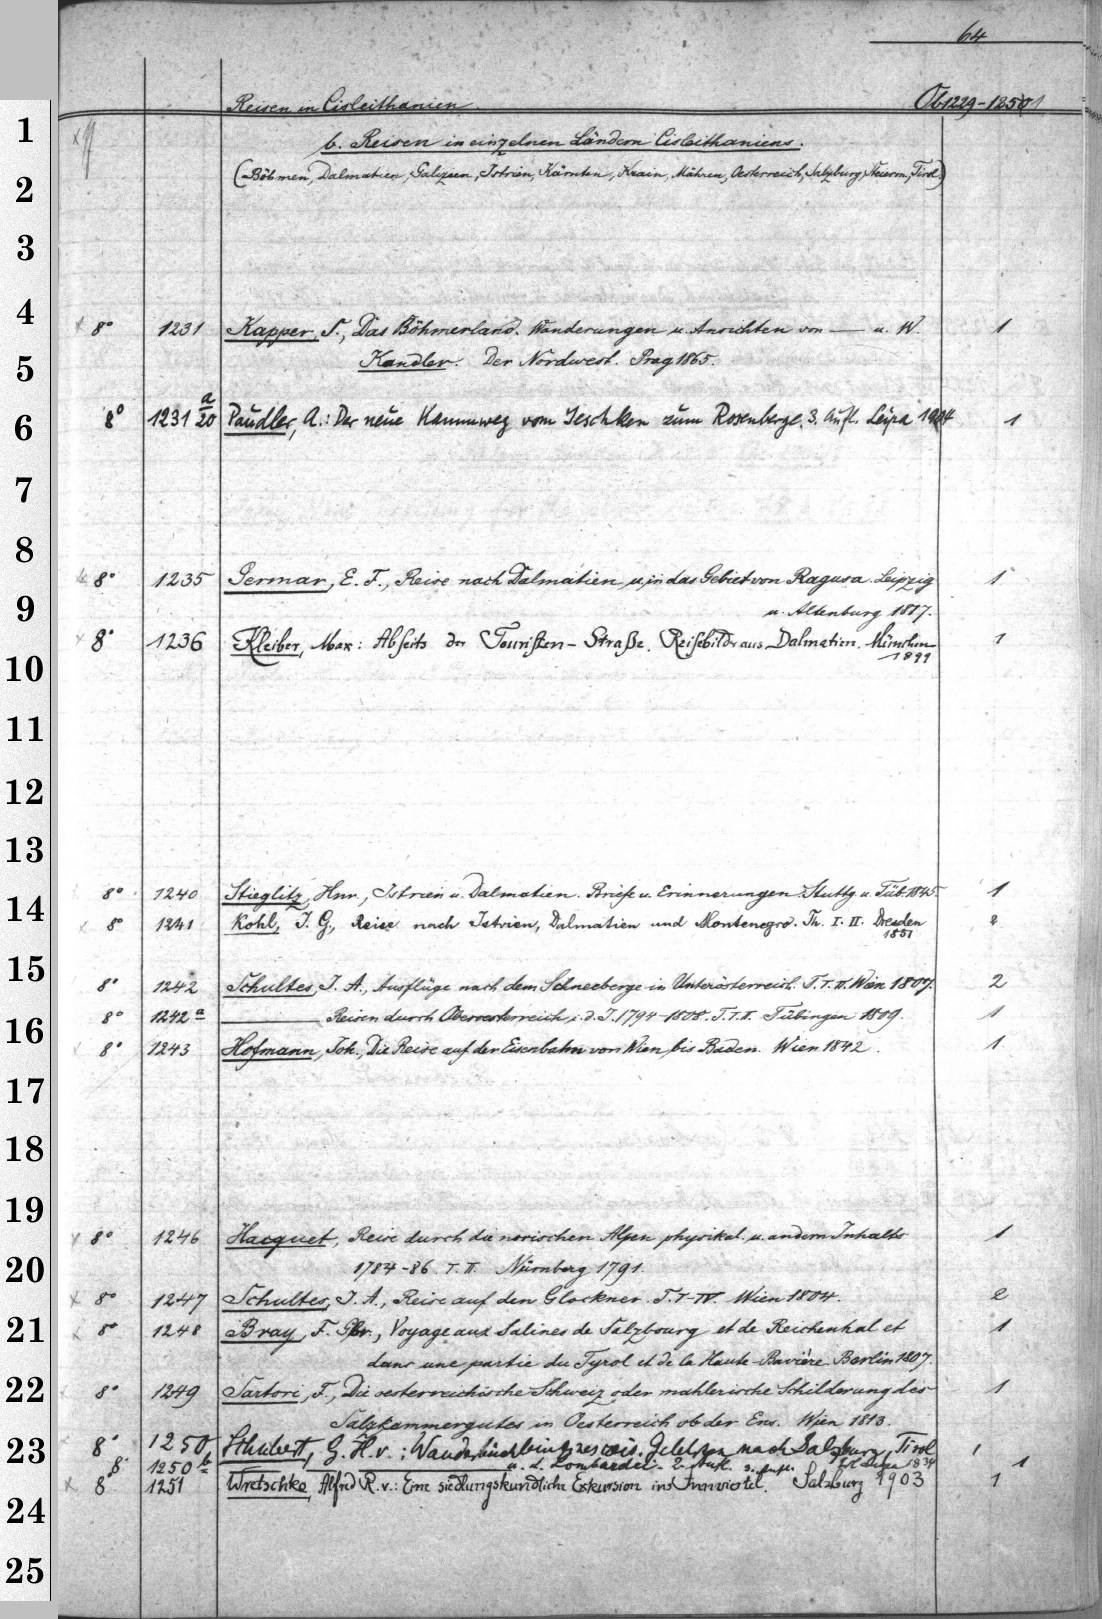 64
Reisen in Cisleithanien. Ob 1229-1251
1 b. Reisen in einzelnen Ländern Cisleithaniens.
2 (Böhmen, Dalmatien, Galizien, Istrien, Kärnten, Krain, Mähren, Oesterreich, Salzburg, Steierm., Tirol.)
3
4 8° 1231 Kapper, S., Das Böhmerland. Wanderungen u. Ansichten von — u. W. 1
5 Kandler. Der Nordwest. Prag 1865.
6 8° 1231 a/20 Paudler, A.: Der neue Kammweg vom Jeschken zum Rosenberge. 3. Aufl. Leipa 1904 1
7
8
8° 1235 Germar, E. F., Reise nach Dalmatien u. in das Gebiet von Ragusa. Leipzig 1
9 u. Altenburg 1817.
8° 1236 Kleiber, Max: Abseits der Touristen-Straße. Reisebilder aus Dalmatien. München 1
10 1899
11
12
13
14 8° 1240 Stieglitz, Hnr., Istrien u. Dalmatien. Briefe u. Erinnerungen. Stuttg. u. Tüb. 1845. 1
8° 1241 Kohl, J. G., Reise nach Istrien, Dalmatien und Montenegro. Th. I. II. Dresden 2
1851
15
8° 1242 Schultes, J. A., Ausflüge nach dem Schneeberge in Unterösterreich. T. I. II. Wien 1807. 2
16 8° 1242 a —— Reisen durch Oberoesterreich i. d. J. 1794-1808. T. I. II. Tübingen 1809. 1
8° 1243 Hofmann, Joh., Die Reise auf der Eisenbahn von Wien bis Baden. Wien 1842. 1
17
18
19
8° 1246 Hacquet, Reise durch die norischen Alpen physikal. u. andern Inhalts 1
20 1784-86. T. II. Nürnberg 1791.
8° 1247 Schultes, J. A., Reise auf den Glockner. T. I-IV. Wien 1804. 2
21 8° 1248 Bray, F. Gbr., Voyage aux Salines de Salzbourg et de Reichenhal et 1
dans une partie du Tyrol et de la Haute-Bavière. Berlin 1807.
22 8° 1249 Sartori, F., Die oesterreichische Schweiz oder mahlerische Schilderung des 1
Salzkammergutes in Oesterreich ob der Ens. Wien 1813.
23 8° 1250 Schubert, G. H. v.: Wanderbüchlein eines reis. Gelehrten nach Salzburg, Tirol 1
8° 1250 b u. d. Lombardei. 2. Aufl. 3. Aufl. Erlangen 1834 1
8° 1251 Wretschko, Alfred R. v.: Eine siedlungskundliche Exkursion ins Innviertel. Salzburg 1903 1
24
25